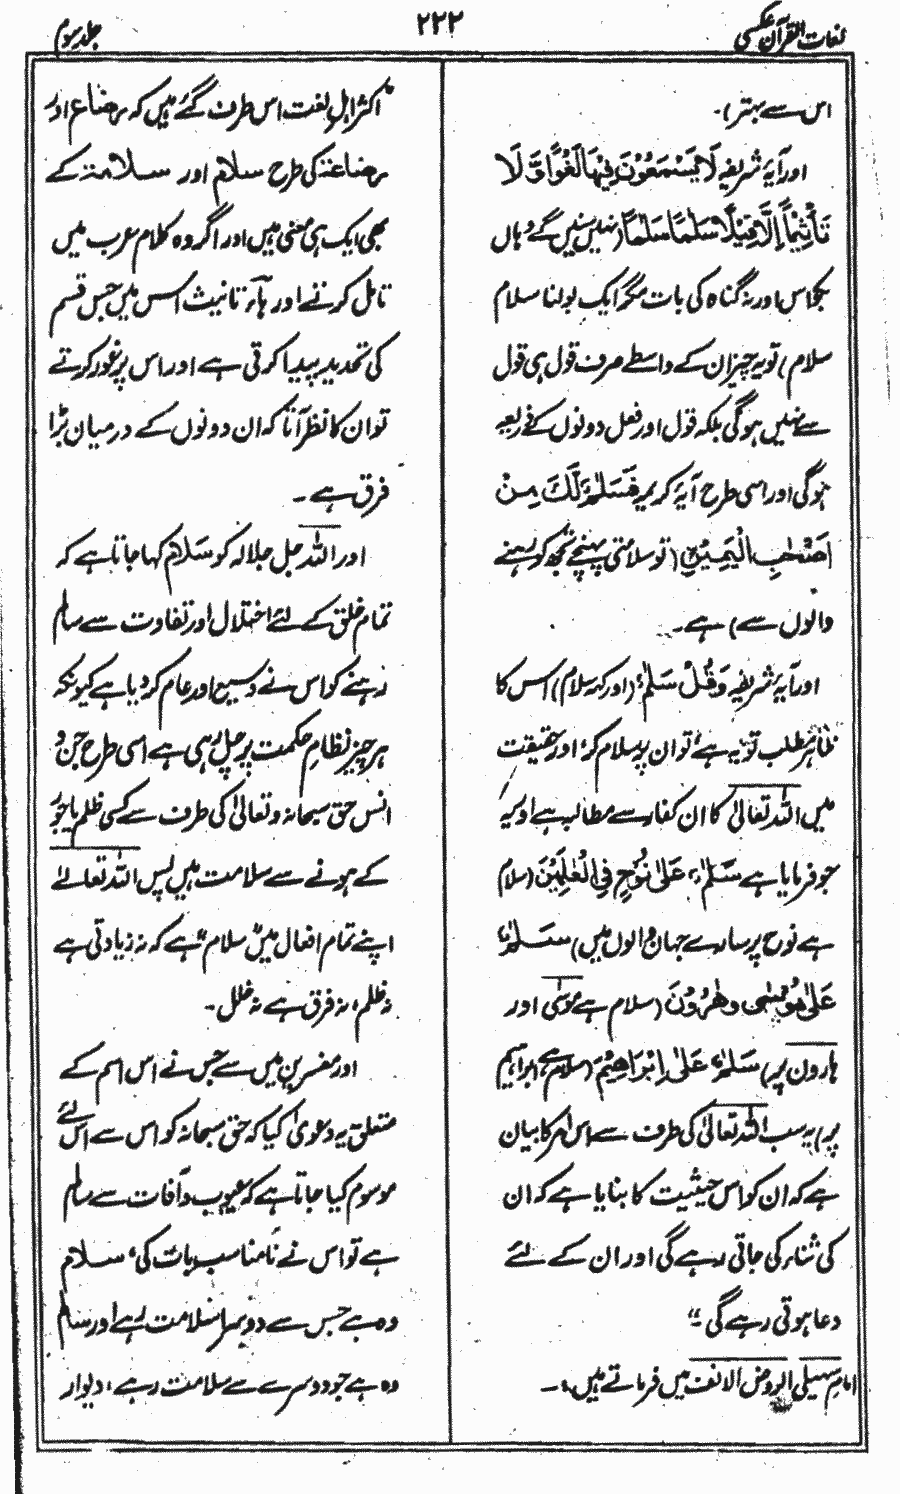 لغات القرآن عکسی
۲۲۲
جلد سوم
اس سے بہتر)۔
اور آیۂ شریفہ لَا یَسْمَعُوْنَ فِیْہَا لَغْوًا وَّ لَا
تَاْثِیْمًا اِلَّا قِیْلًا سَلٰمًا سَلٰمًا (نہیں سنیں گے وہاں
بکواس اور نہ گناہ کی بات مگر ایک بولنا سلام
سلام) تو یہ چیز ان کے واسطے صرف قول ہی قول
سے نہیں ہوگی بلکہ قول اور فعل دونوں کے ذریعہ
ہوگی اور اسی طرح آیۂ کریمہ فَسَلٰمٌ لَّکَ مِنْ
اَصْحٰبِ الْیَمِیْنِ (تو سلامتی پہنچے تجھ کو رہنے
والوں سے) ہے۔
اور آیۂ شریفہ وَقُلْ سَلٰمٌ (اور کہہ سلام) اس کا
ظاہر مطلب تو یہ ہے تو ان پر سلام کر اور حقیقت
میں اللہ تعالیٰ کا ان کفار سے مطالبہ ہے اور یہ
جو فرمایا ہے سَلٰمٌ عَلٰی نُوْحٍ فِی الْعٰلَمِیْنَ (سلام
ہے نوح پر سارے جہان والوں میں) سَلٰمٌ
عَلٰی مُوْسٰی وَ ھٰرُوْنَ (سلام ہے موسیٰ اور
ہارون پر) سَلٰمٌ عَلٰی اِبْرَاھِیْمَ (سلام ہے ابراہیم
پر) یہ سب اللہ تعالیٰ کی طرف سے اس امر کا بیان
ہے کہ ان کو اس حیثیت کا بنایا ہے کہ ان
کی ثناء کی جاتی رہے گی اور ان کے لئے
دعا ہوتی رہے گی"۔
امام سہیلی الروض الانف میں فرماتے ہیں:۔
"اکثر اہلِ لغت اس طرف گئے ہیں کہ رضاع اور
رضاعۃ کی طرح سلام اور سلامۃ کے
بھی ایک ہی معنی ہیں اور اگر وہ کلامِ عرب میں
تامل کرتے اور ہاء تانیث اس میں جس قسم
کی تحدید پیدا کرتی ہے اور اس پر غور کرتے
تو ان کا نظر آتا کہ ان دونوں کے درمیان بڑا
فرق ہے۔
اور اللہ جل جلالہ کو سَلام کہا جاتا ہے کہ
تمام خلق کے لئے اختلال اور تفاوت سے سالم
رہنے کو اس نے وسیع اور عام کر دیا ہے کیونکہ
ہر چیز نظامِ حکمت پر چل رہی ہے اسی طرح جن و
انس حق سبحانہ و تعالیٰ کی طرف سے کسی ظلم یا جور
کے ہونے سے سلامت ہیں پس اللہ تعالےٰ
اپنے تمام افعال میں سلام ہے کہ نہ زیادتی ہے
نہ ظلم، نہ فرق ہے نہ خلل۔
اور مفسرین میں سے جس نے اس اسم کے
متعلق یہ دعویٰ کیا کہ حق سبحانہ کو اس سے اس لئے
موسوم کیا جاتا ہے کہ عیوب و آفات سے سالم
ہے تو اس نے نامناسب بات کی، سلام
وہ ہے جس سے دوسرا سلامت رہے اور سالم
وہ ہے جو دوسرے سے سلامت رہے، دیوار